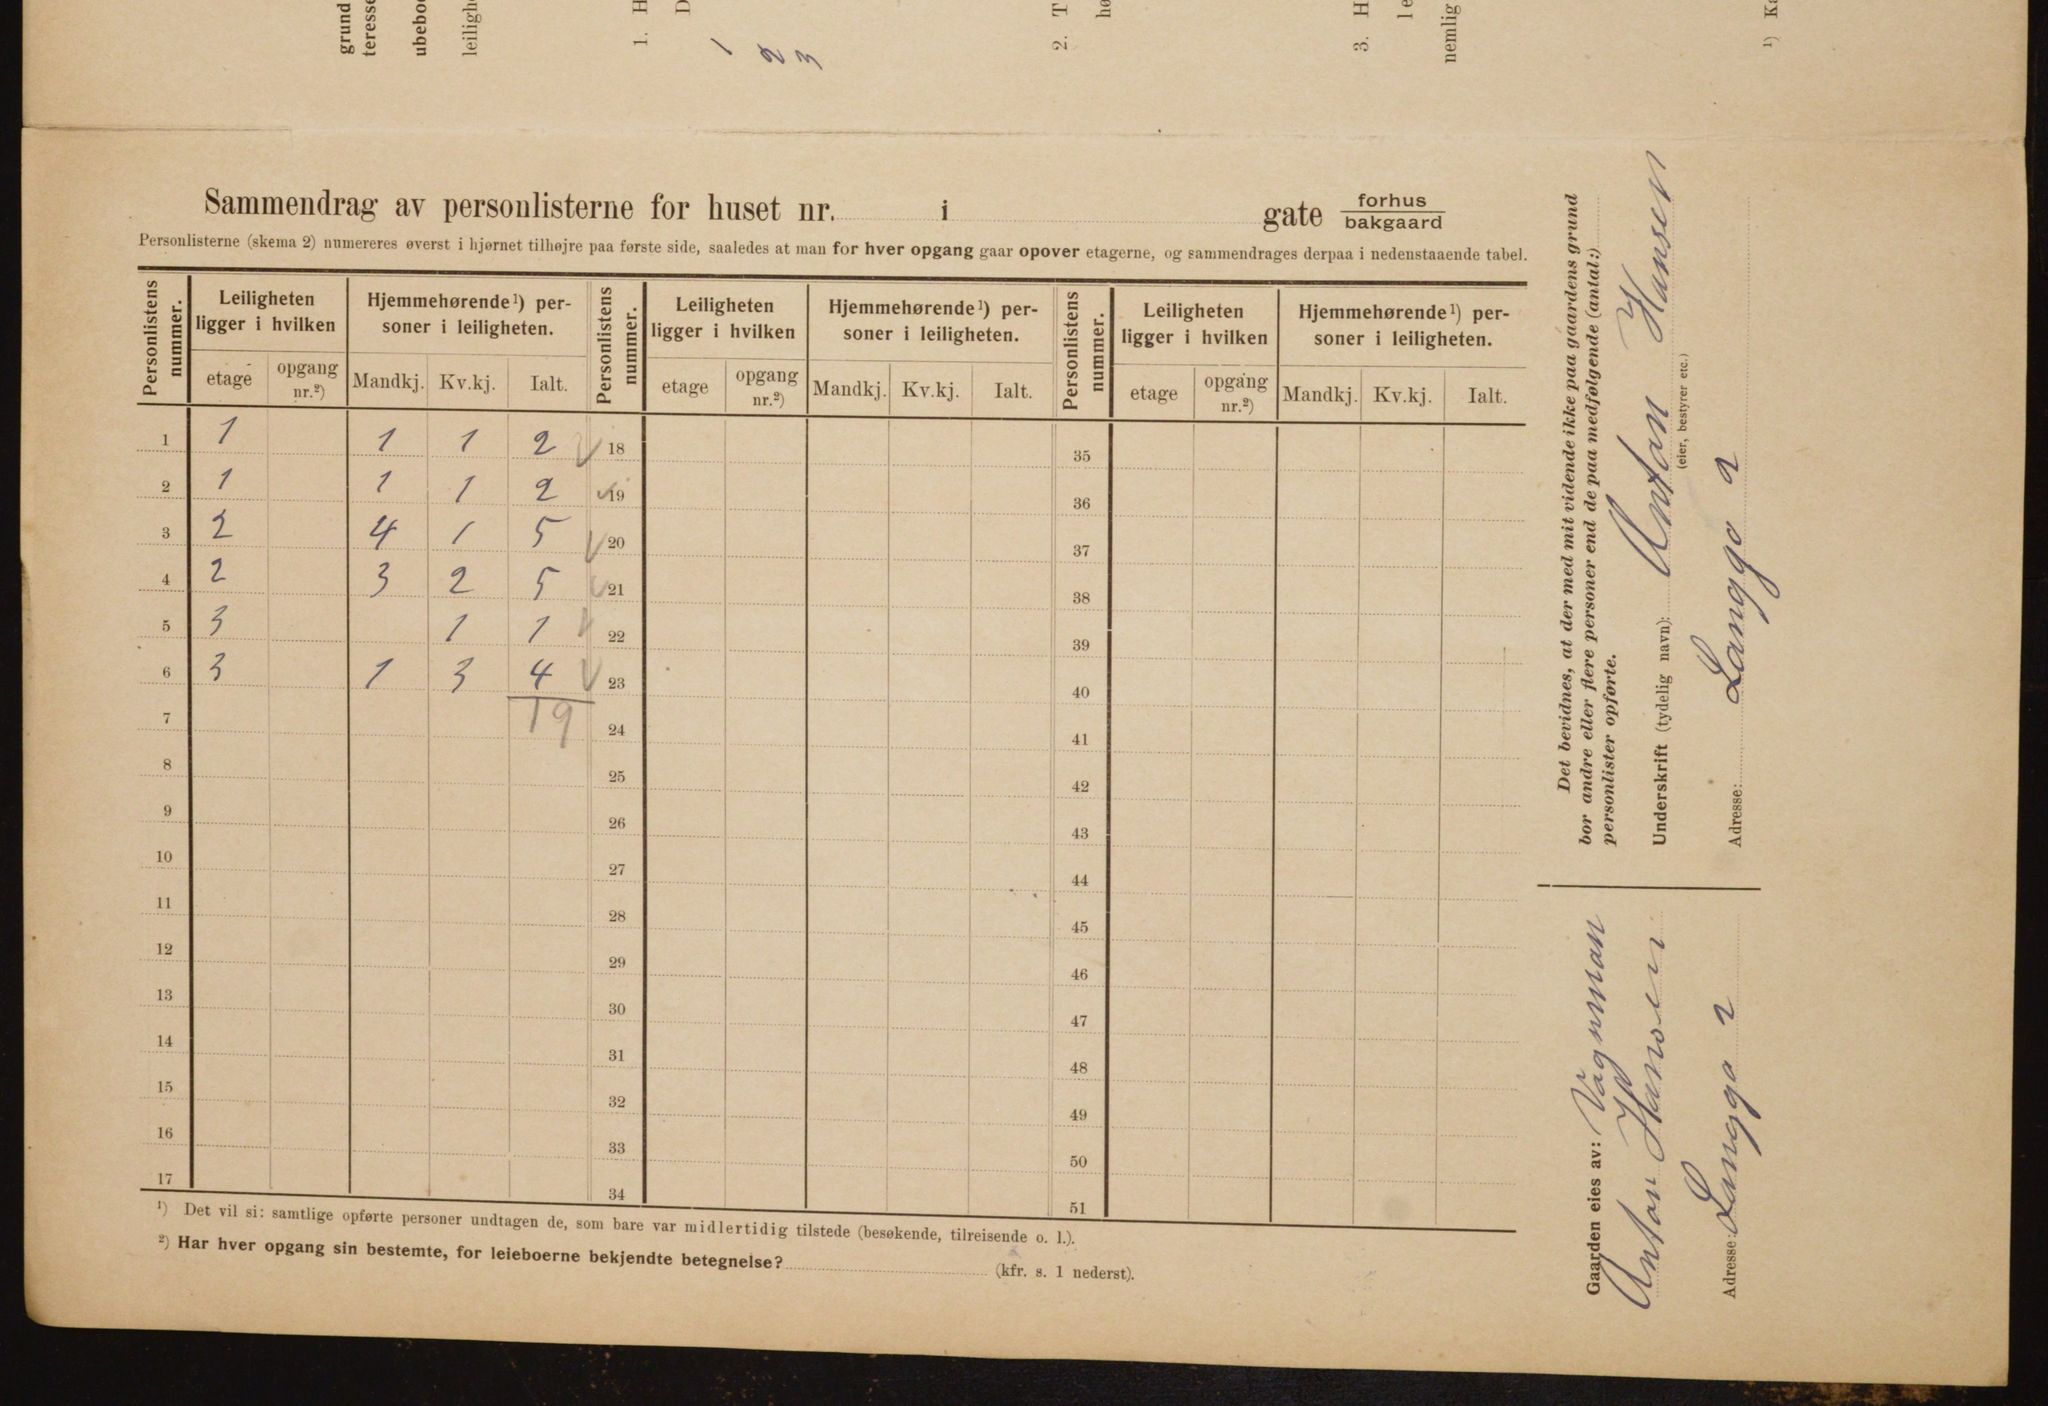 grund
teresse
ubebo
leiligh
1. H
D
1
2
3
2. T
hø
3. H
le
nemlig
¹) Ka
Sammendrag av personlisterne for huset nr. i gate forhus
bakgaard
Personlisterne (skema 2) numereres øverst i hjørnet tilhøjre paa første side, saaledes at man for hver opgang gaar opover etagerne, og sammendrages derpaa i nedenstaaende tabel.
Personlistens nummer. Leiligheten ligger i hvilken Hjemmehørende¹) personer i leiligheten. Personlistens nummer. Leiligheten ligger i hvilken Hjemmehørende¹) personer i leiligheten. Personlistens nummer. Leiligheten ligger i hvilken Hjemmehørende¹) personer i leiligheten.
etage opgang nr.²) Mandkj. Kv.kj. Ialt. etage opgang nr.²) Mandkj. Kv.kj. Ialt. etage opgang nr.²) Mandkj. Kv.kj. Ialt.
1 1 1 1 2 18 35
2 1 1 1 2 19 36
3 2 4 1 5 20 37
4 2 3 2 5 21 38
5 3 1 1 22 39
6 3 1 3 4 23 40
7 19 24 41
8 25 42
9 26 43
10 27 44
11 28 45
12 29 46
13 30 47
14 31 48
15 32 49
16 33 50
17 34 51
¹) Det vil si: samtlige opførte personer undtagen de, som bare var midlertidig tilstede (besøkende, tilreisende o. l.).
²) Har hver opgang sin bestemte, for leieboerne bekjendte betegnelse? (kfr. s. 1 nederst).
Det bevidnes, at der med mit vidende ikke paa gaardens grund
bor andre eller flere personer end de paa medfølgende (antal:)
personlister opførte.
Underskrift (tydelig navn): Anton Hansen
(eier, bestyrer etc.)
Adresse: Langgt 2
Gaarden eies av: Vognman
Anton Hansen
Adresse: Langga 2